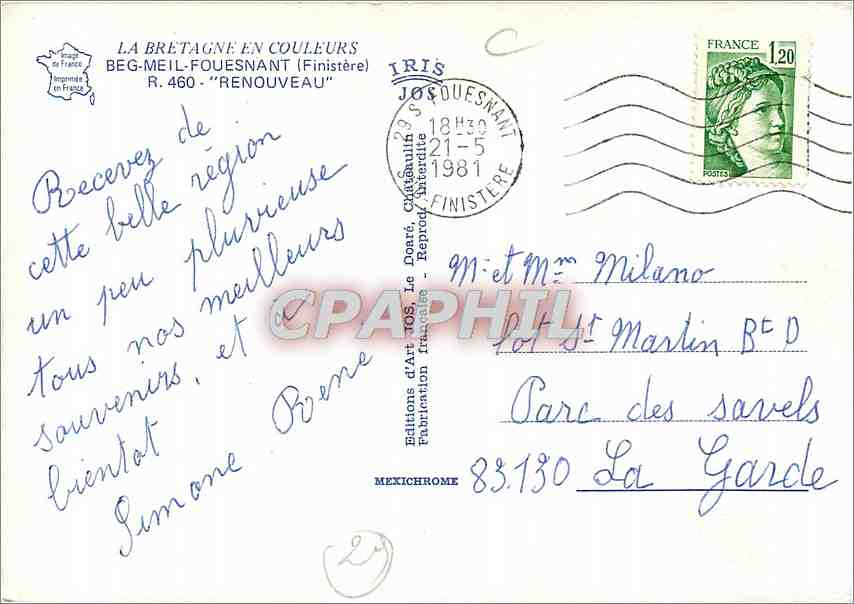 Image
de France
Imprimée
en France
LA BRETAGNE EN COULEURS
BEG-MEIL-FOUESNANT (Finistère)
R. 460 - "RENOUVEAU"
IRIS
JOS
29 S FOUESNANT
18H30
21-5
1981
S. FINISTÈRE
FRANCE 1,20
POSTES
Recevez de
cette belle région
un peu pluvieuse
tous nos meilleurs
souvenirs, et à
bientot
Simone René
Editions d'Art JOS, Le Doaré, Chateaulin
Fabrication française - Reprod. interdite
MEXICHROME
M. et Mm Milano
lot St Martin Bt D
Parc des savels
83.130 La Garde
CPAPHIL